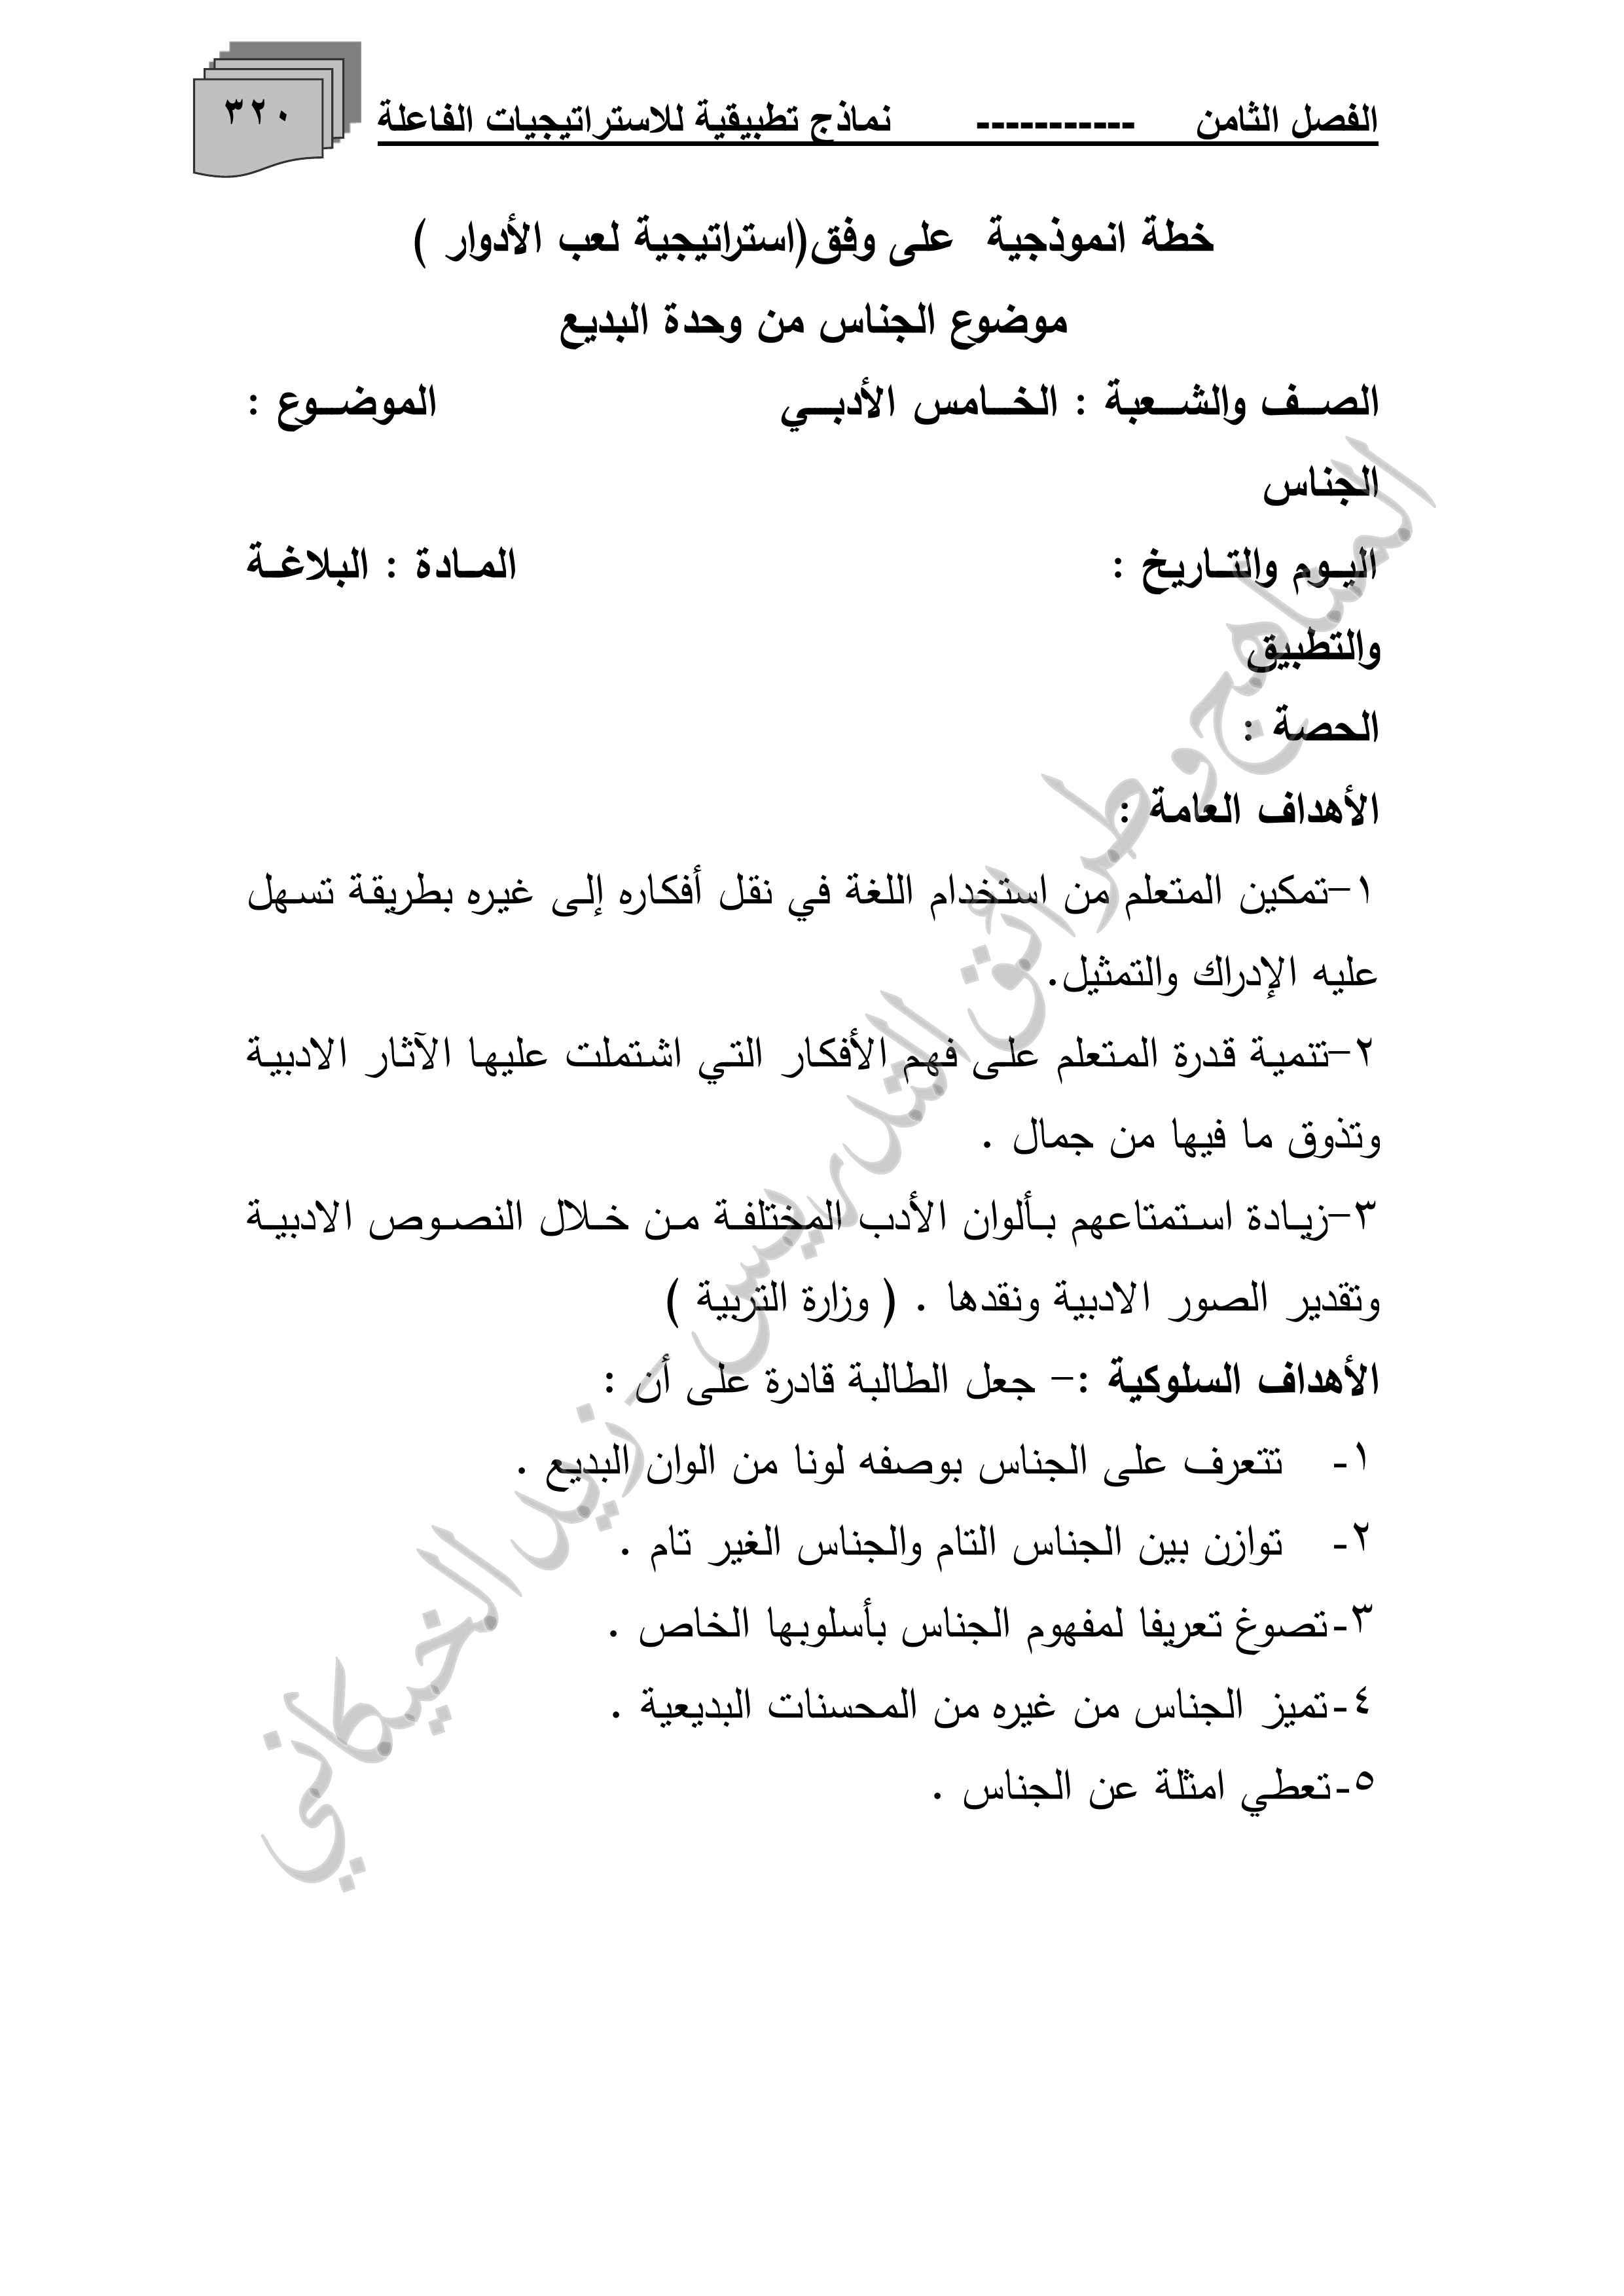 الفصل الثامن ----------- نماذج تطبيقية للاستراتيجيات الفاعلة
٣٢٠
خطة انموذجية على وفق(استراتيجية لعب الأدوار )
موضوع الجناس من وحدة البديع
الصف والشعبة : الخامس الأدبي الموضوع :
الجناس
اليوم والتاريخ : المادة : البلاغة
والتطبيق
الحصة :
الأهداف العامة :
١-تمكين المتعلم من استخدام اللغة في نقل أفكاره إلى غيره بطريقة تسهل
عليه الإدراك والتمثيل.
٢-تنمية قدرة المتعلم على فهم الأفكار التي اشتملت عليها الآثار الادبية
وتذوق ما فيها من جمال .
٣-زيادة استمتاعهم بألوان الأدب المختلفة من خلال النصوص الادبية
وتقدير الصور الادبية ونقدها . ( وزارة التربية )
الأهداف السلوكية :- جعل الطالبة قادرة على أن :
١- تتعرف على الجناس بوصفه لونا من الوان البديع .
٢- توازن بين الجناس التام والجناس الغير تام .
٣-تصوغ تعريفا لمفهوم الجناس بأسلوبها الخاص .
٤-تميز الجناس من غيره من المحسنات البديعية .
٥-تعطي امثلة عن الجناس .
المناهج وطرائق التدريس - زيد الخيكاني